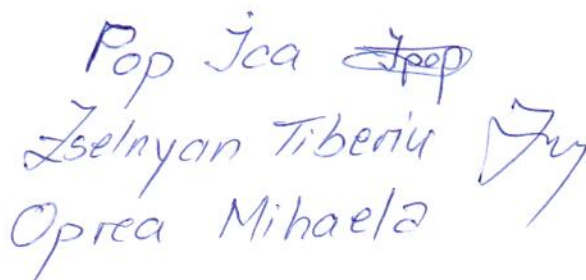 Pop Ica Ipop
Zselnyan Tiberiu
Oprea Mihaela